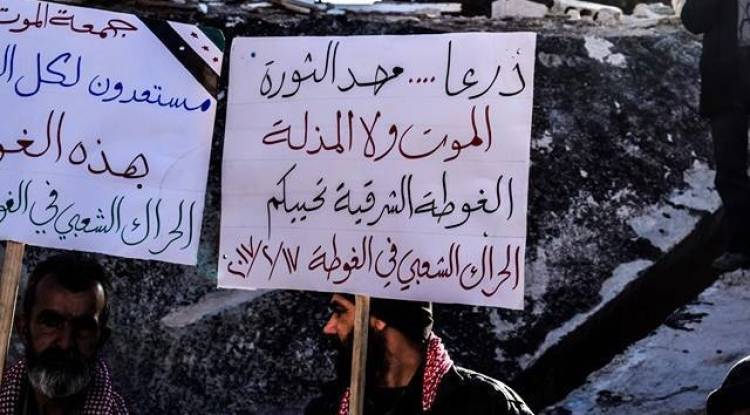 جمعة الموت
مستعدون لكل
بهذه الغو
الحراك الشعبي في الغو
درعا .... مهد الثورة
الموت ولا المذلة
الغوطة الشرقية تحييكم
الحراك الشعبي في الغوطة ٢٠١٧/٢/١٧